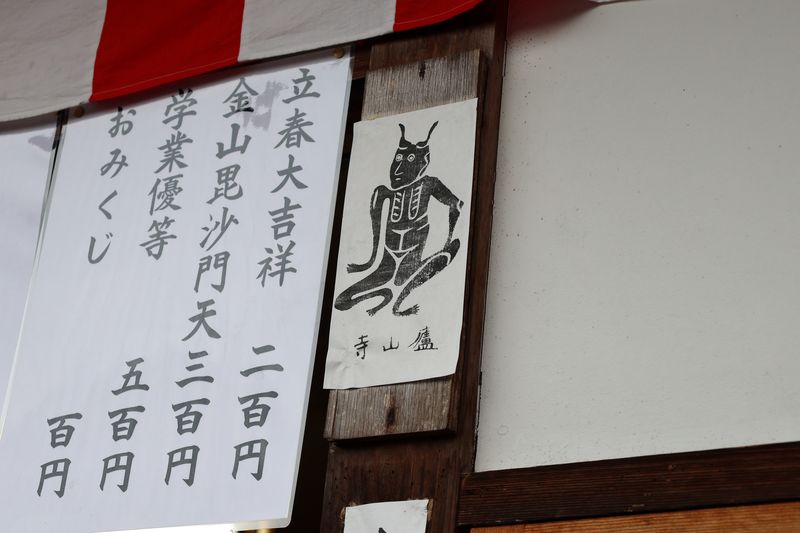 立春大吉祥 二百円
金山毘沙門天 三百円
学業優等 五百円
おみくじ 百円
廬山寺